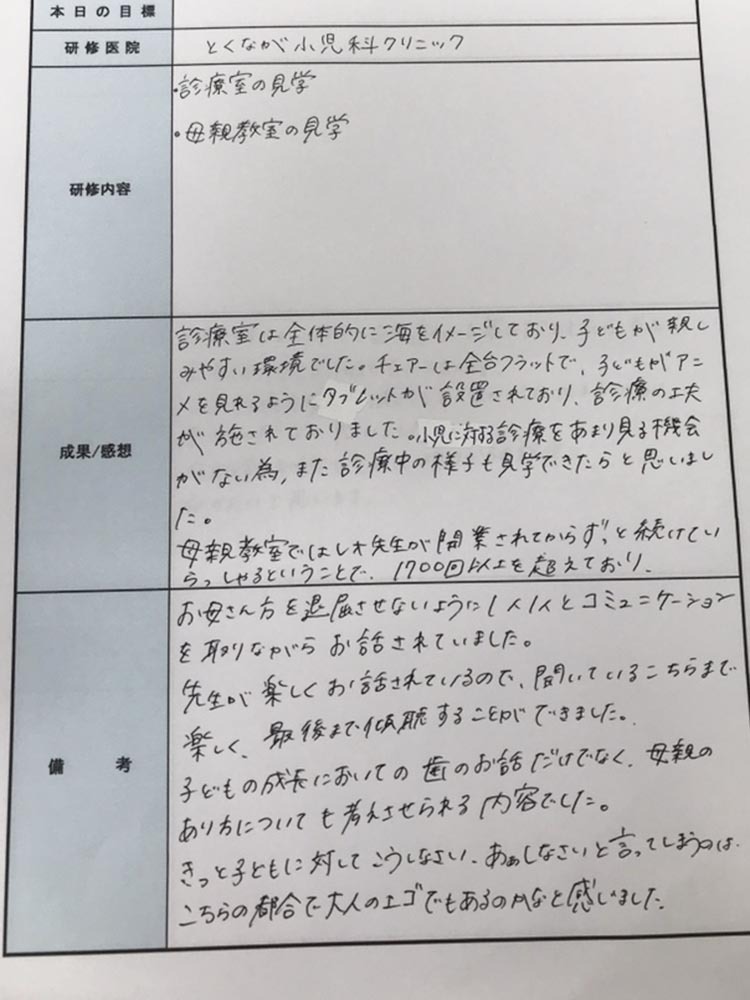 本日の目標
研修医院
とくなが小児科クリニック
研修内容
・診療室の見学
・母親教室の見学
成果/感想
診療室は全体的に海をイメージしており、子どもが親し
みやすい環境でした。チェアーは全台フラットで、子どもがアニ
メを見れるようにタブレットが設置されており、診療の工夫
が施されておりました。小児に対する診療をあまり見る機会
がない為、また診療中の様子も見学できたらと思いまし
た。
母親教室では 先生が開業されてからずっと続けてい
らっしゃるということで、1700回以上を超えており、
備考
お母さん方を退屈させないように1人1人とコミュニケーション
を取りながらお話されていました。
先生が楽しくお話されているので、聞いているこちらまで
楽しく、最後まで傾聴することができました。
子どもの成長においての歯のお話だけでなく、母親の
あり方についても考えさせられる内容でした。
きっと子どもに対してこうしなさい、あぁしなさいと言ってしまうのは、
こちらの都合で大人のエゴでもあるのかなと感じました。